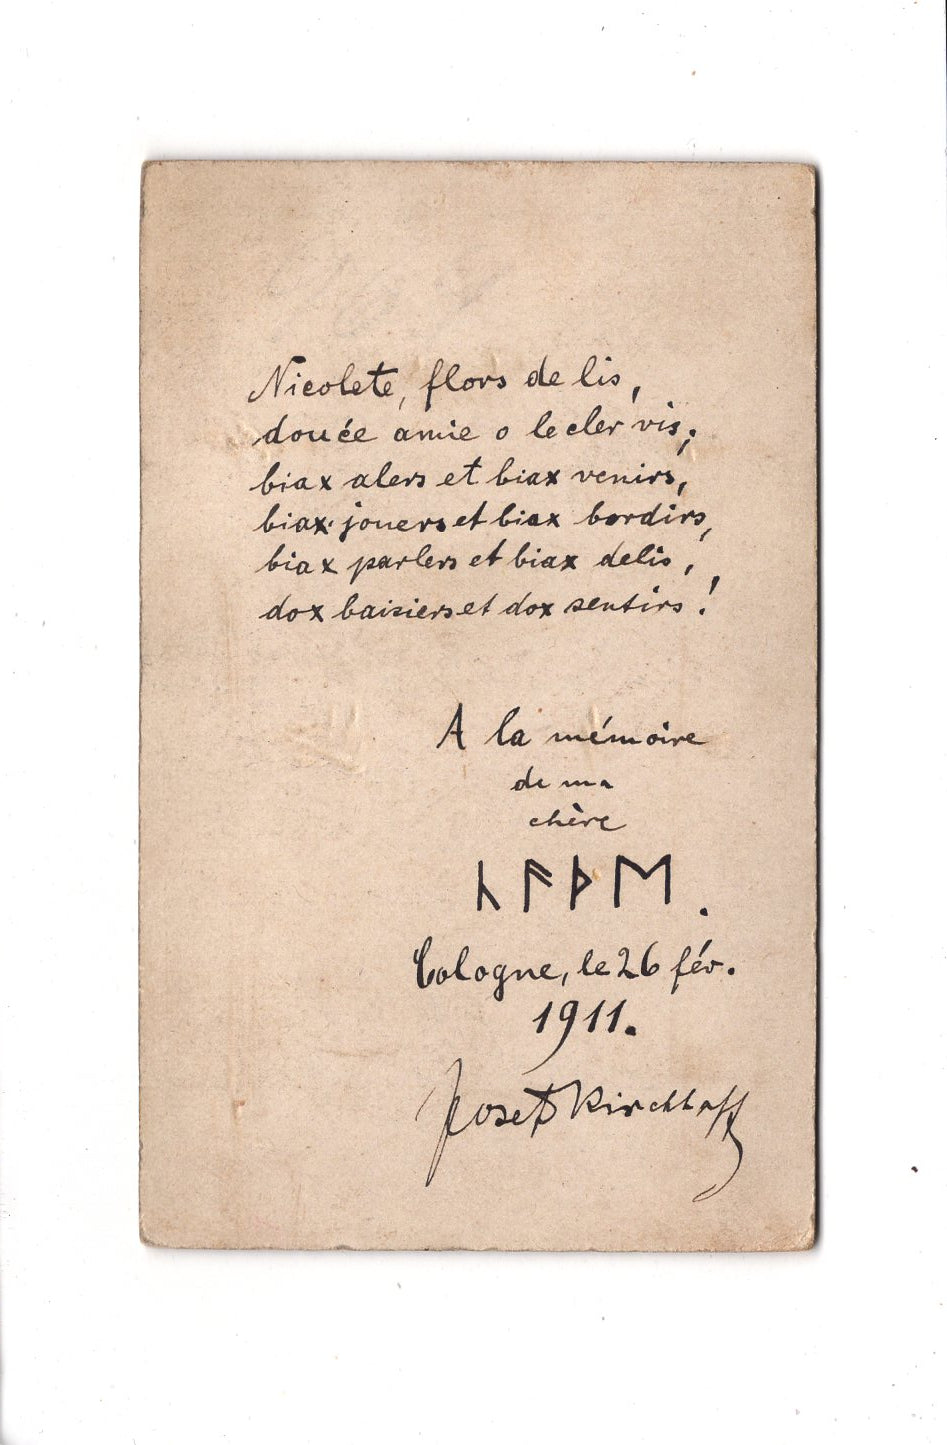 Nicolete, flors de lis,
douće amie o le cler vis;
biax alers et biax venirs,
biax jouers et biax bordirs,
biax parlers et biax delis,
dox baisiers et dox sentirs!
A la mémoire
de ma
chère
ᚳᚫᚦᛖ.
Cologne, le 26 fév.
1911.
Josef Kirchhoff